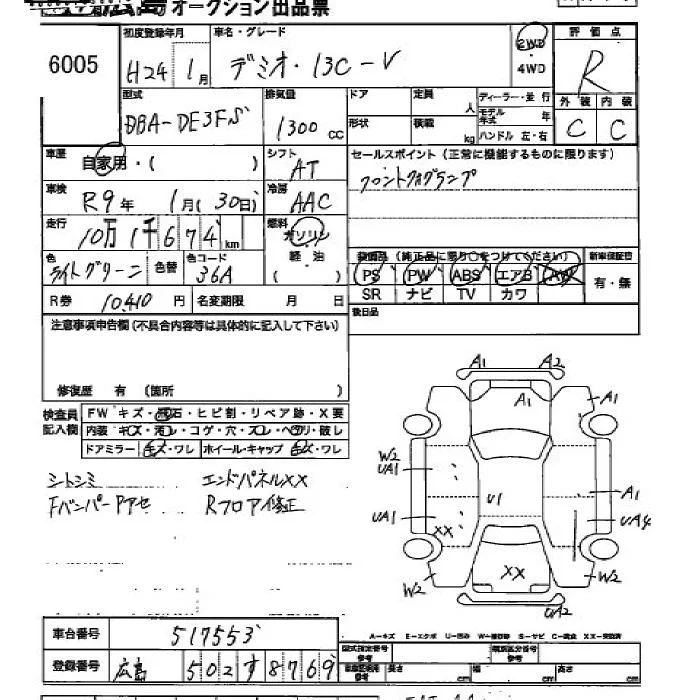 オークション出品票
6005
初度登録年月
H24 1月
車名・グレード
デミオ・13C-V
2WD
・
4WD
評価点
R
外装 内装
C C
型式
DBA-DE3FS
排気量
1300 cc
ドア
定員 人
形状
積載 kg
ディーラー・並行
モデル年式 年
ハンドル 左・右
車歴
自家用・( )
シフト
AT
セールスポイント(正常に機能するものに限ります)
フロントフォグランプ
車検
R9年 1月(30日)
冷房
AAC
走行
10万1千674km
燃料
ガソリン
軽・油
( )
色
ライトグリーン
色替
色コード
36A
装備品(純正品に限り○をつけてください)
PS PW ABS エアB AW
SR ナビ TV カワ
新車保証書
有・無
R券 10410円
名変期限 月 日
後日品
注意事項申告欄(不具合内容等は具体的に記入して下さい)
修復歴 有(箇所 )
検査員
記入欄
FW キズ・飛石・ヒビ割・リペア跡・X要
内装 キズ・汚レ・コゲ・穴・スレ・ヘタリ・破レ
ドアミラー キズ・ワレ ホイール・キャップ キズ・ワレ
シトシミ エンドパネルXX
FバンパーPアセ Rフロア修正
A1 A2
A1
A1
W2
UA1
U1
A1
UA1
UA4
XX
XX
W2
W2
UA2
車台番号 517553
登録番号 広島 502 す 8769
A-キズ E-エクボ U-凹み W-補修跡 S-サビ C-腐食 XX-交換済
型式指定番号
参考
類別区分番号
参考
長さ cm 幅 cm 高さ cm